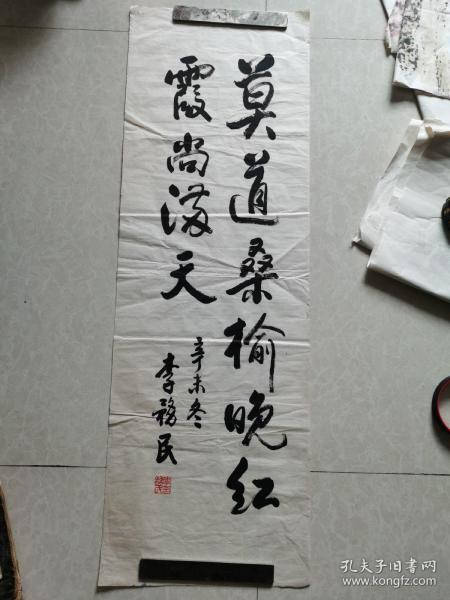 莫道桑榆晚红
霞尚满天
辛未冬
李務民
孔夫子旧书网
www.kongfz.com